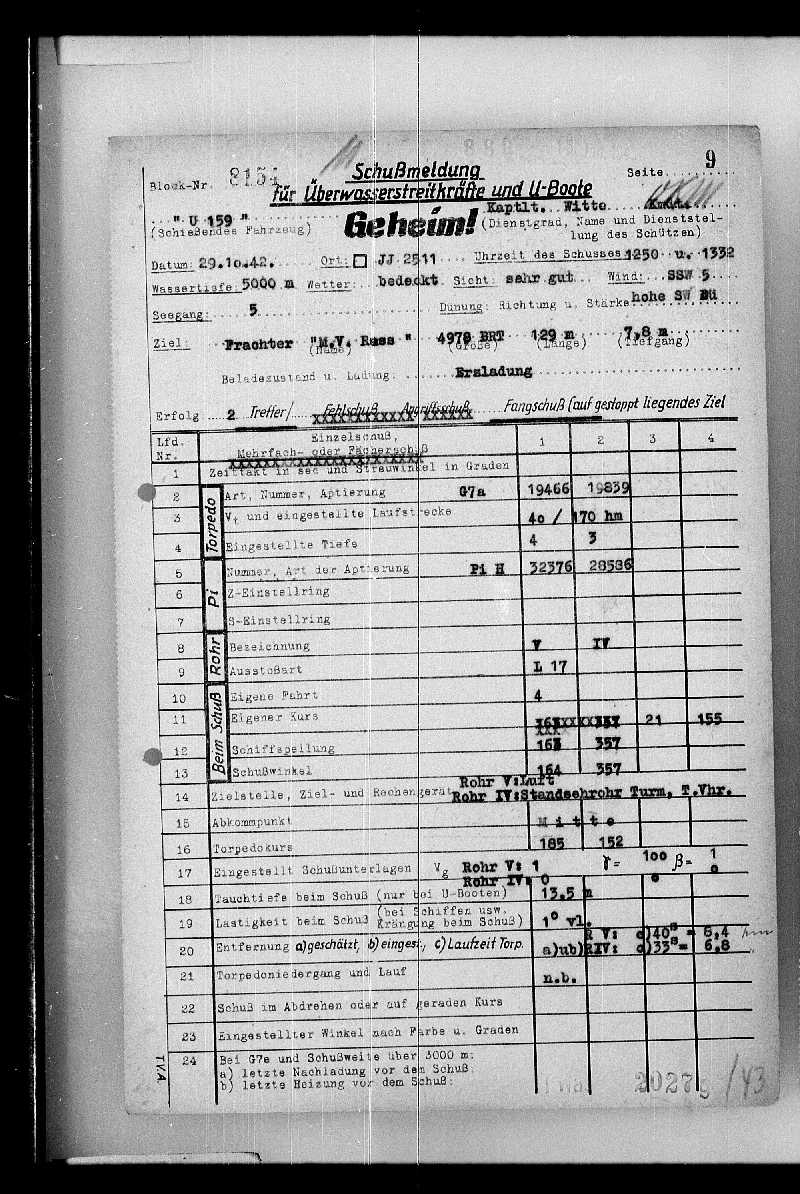 9
Schußmeldung
Block-Nr. 8154 Seite
für Überwasserstreitkräfte und U-Boote
" U 159 " Geheim! Kaptlt. Witte Kmdt.
(Schießendes Fahrzeug) (Dienstgrad, Name und Dienststel-
lung des Schützen)
Datum: 29.10.42. Ort: JJ 2511 Uhrzeit des Schusses 1250 u. 1332
Wassertiefe: 5000 m Wetter: bedeckt Sicht: sehr gut Wind: SSW 5
Seegang: 5 Dünung: Richtung u. Stärke hohe SW Dü
Ziel: Frachter "M.V. Ross " 4978 BRT 129 m 7,8 m
(Name) (Größe) (Länge) (Tiefgang)
Beladezustand u. Ladung: Erzladung
Erfolg 2 Treffer/ Fehlschuß Angriffsschuß Fangschuß (auf gestoppt liegendes Ziel
Lfd. Nr. Einzelschuß, 1 2 3 4
Mehrfach- oder Fächerschuß
1 Zeittakt in sec und Streuwinkel in Graden
Torpedo
2 Art, Nummer, Aptierung G7a 19466 19839
3 Vt und eingestellte Laufstrecke 40 / 170 hm
4 Eingestellte Tiefe 4 3
Pi
5 Nummer, Art der Aptierung Pi H 32376 28536
6 Z-Einstellring
7 S-Einstellring
Rohr
8 Bezeichnung V IV
9 Ausstoßart L 17
Beim Schuß
10 Eigene Fahrt 4
11 Eigener Kurs 21 155
12 Schiffspeilung 163 357
13 Schußwinkel 164 357
14 Zielstelle, Ziel- und Rechengerät Rohr V:Luft
Rohr IV:Standsehrohr Turm, T.Vhr.
15 Abkommpunkt M i t t e
16 Torpedokurs 185 152
17 Eingestellt Schußunterlagen Vg Rohr V: 1 γ = 100 β = 1
Rohr IV: 0 0 0
18 Tauchtiefe beim Schuß (nur bei U-Booten) 13,5 m
19 Lastigkeit beim Schuß (bei Schiffen usw. Krängung beim Schuß) 1° vl.
20 Entfernung a) geschätzt, b) eingest., c) Laufzeit Torp. a)ub) R V: c)40s = 6,4 hm
RIV: c)33s = 6,8
21 Torpedoniedergang und Lauf n.b.
22 Schuß im Abdrehen oder auf geraden Kurs
23 Eingestellter Winkel nach Farbe u. Graden
24 Bei G7e und Schußweite über 3000 m:
a) letzte Nachladung vor dem Schuß:
b) letzte Heizung vor dem Schuß:
T.V.A
2027g /43